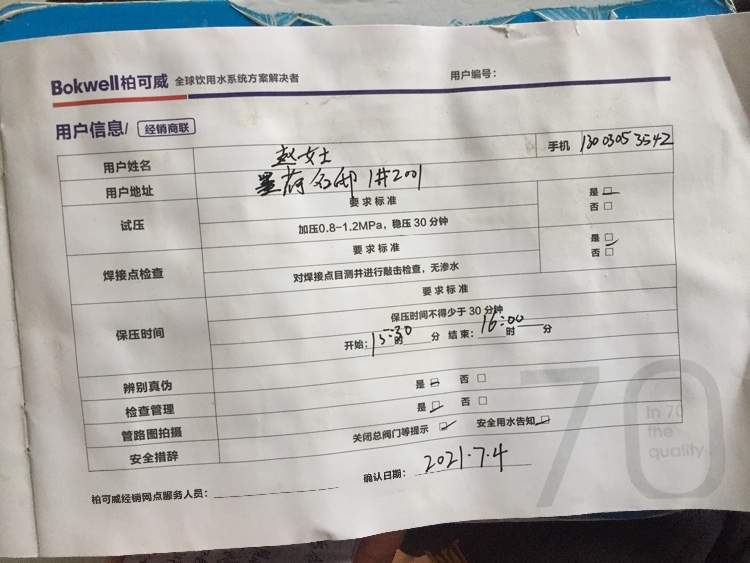 Bokwell柏可威 全球饮用水系统方案解决者 用户编号:
用户信息/ 经销商联
用户姓名 赵女士 手机 13003053542
用户地址 墨荷名邸 1#2001
试压 要求标准 是 □
加压0.8-1.2MPa，稳压30分钟 否 □
焊接点检查 要求标准 是 □
对焊接点目测并进行敲击检查，无渗水 否 □
保压时间 要求标准
保压时间不得少于30分钟
开始: 15:30 时 分 结束: 16:00 时 分
辨别真伪 是 □ 否 □
检查管理 是 □ 否 □
管路图拍摄 关闭总阀门等提示 □ 安全用水告知 □
安全措辞
柏可威经销网点服务人员: 确认日期: 2021.7.4
70
In 70
the
quality